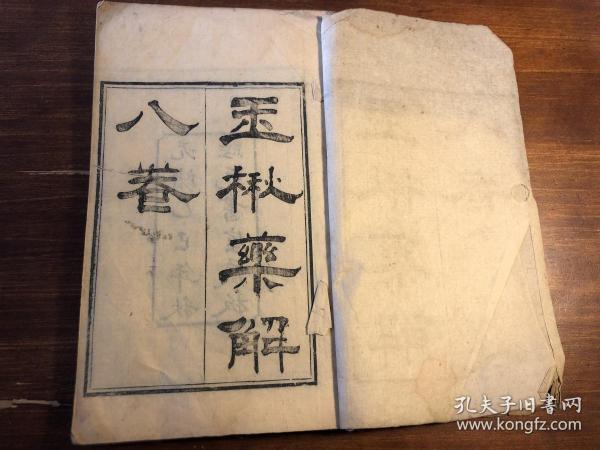 玉楸藥解
八卷
孔夫子旧書网
www.kongfz.com